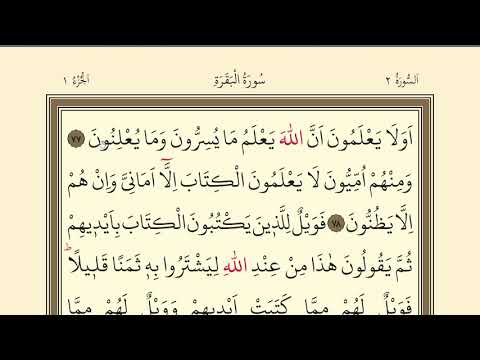 اَلسُّورَةُ ٢
سُورَةُ الْبَقَرَةِ
اَلْجُزْءُ ١
اَوَلَا يَعْلَمُونَ اَنَّ اللّٰهَ يَعْلَمُ مَا يُسِرُّونَ وَمَا يُعْلِنُونَ ٧٧
وَمِنْهُمْ اُمِّيُّونَ لَا يَعْلَمُونَ الْكِتَابَ اِلَّٓا اَمَانِيَّ وَاِنْ هُمْ
اِلَّا يَظُنُّونَ ٧٨ فَوَيْلٌ لِلَّذ۪ينَ يَكْتُبُونَ الْكِتَابَ بِاَيْد۪يهِمْ
ثُمَّ يَقُولُونَ هٰذَا مِنْ عِنْدِ اللّٰهِ لِيَشْتَرُوا بِه۪ ثَمَنًا قَل۪يلًاۜ
فَوَيْلٌ لَهُمْ مِمَّا كَتَبَتْ اَيْد۪يهِمْ وَوَيْلٌ لَهُمْ مِمَّا